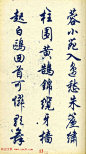 蓉小苑入邊愁朱簾繡
柱圍黃鵠錦纜牙檣
起白鷗回首可憐歌舞